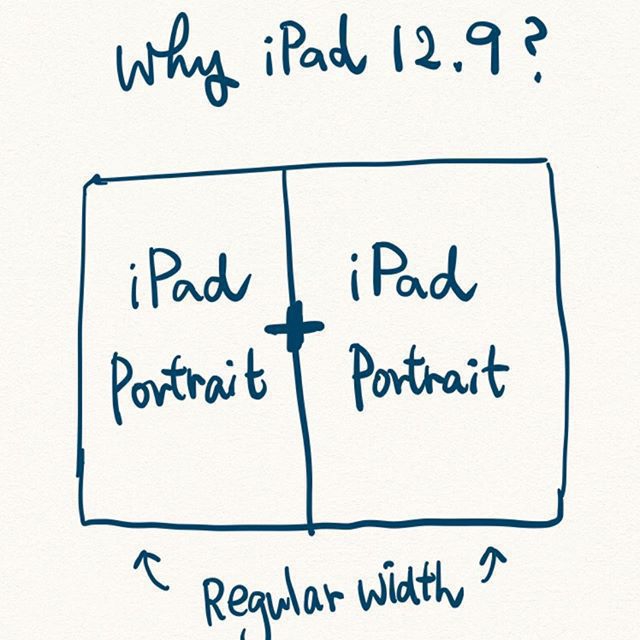 Why iPad 12.9?
iPad
Portrait
iPad
Portrait
Regular Width